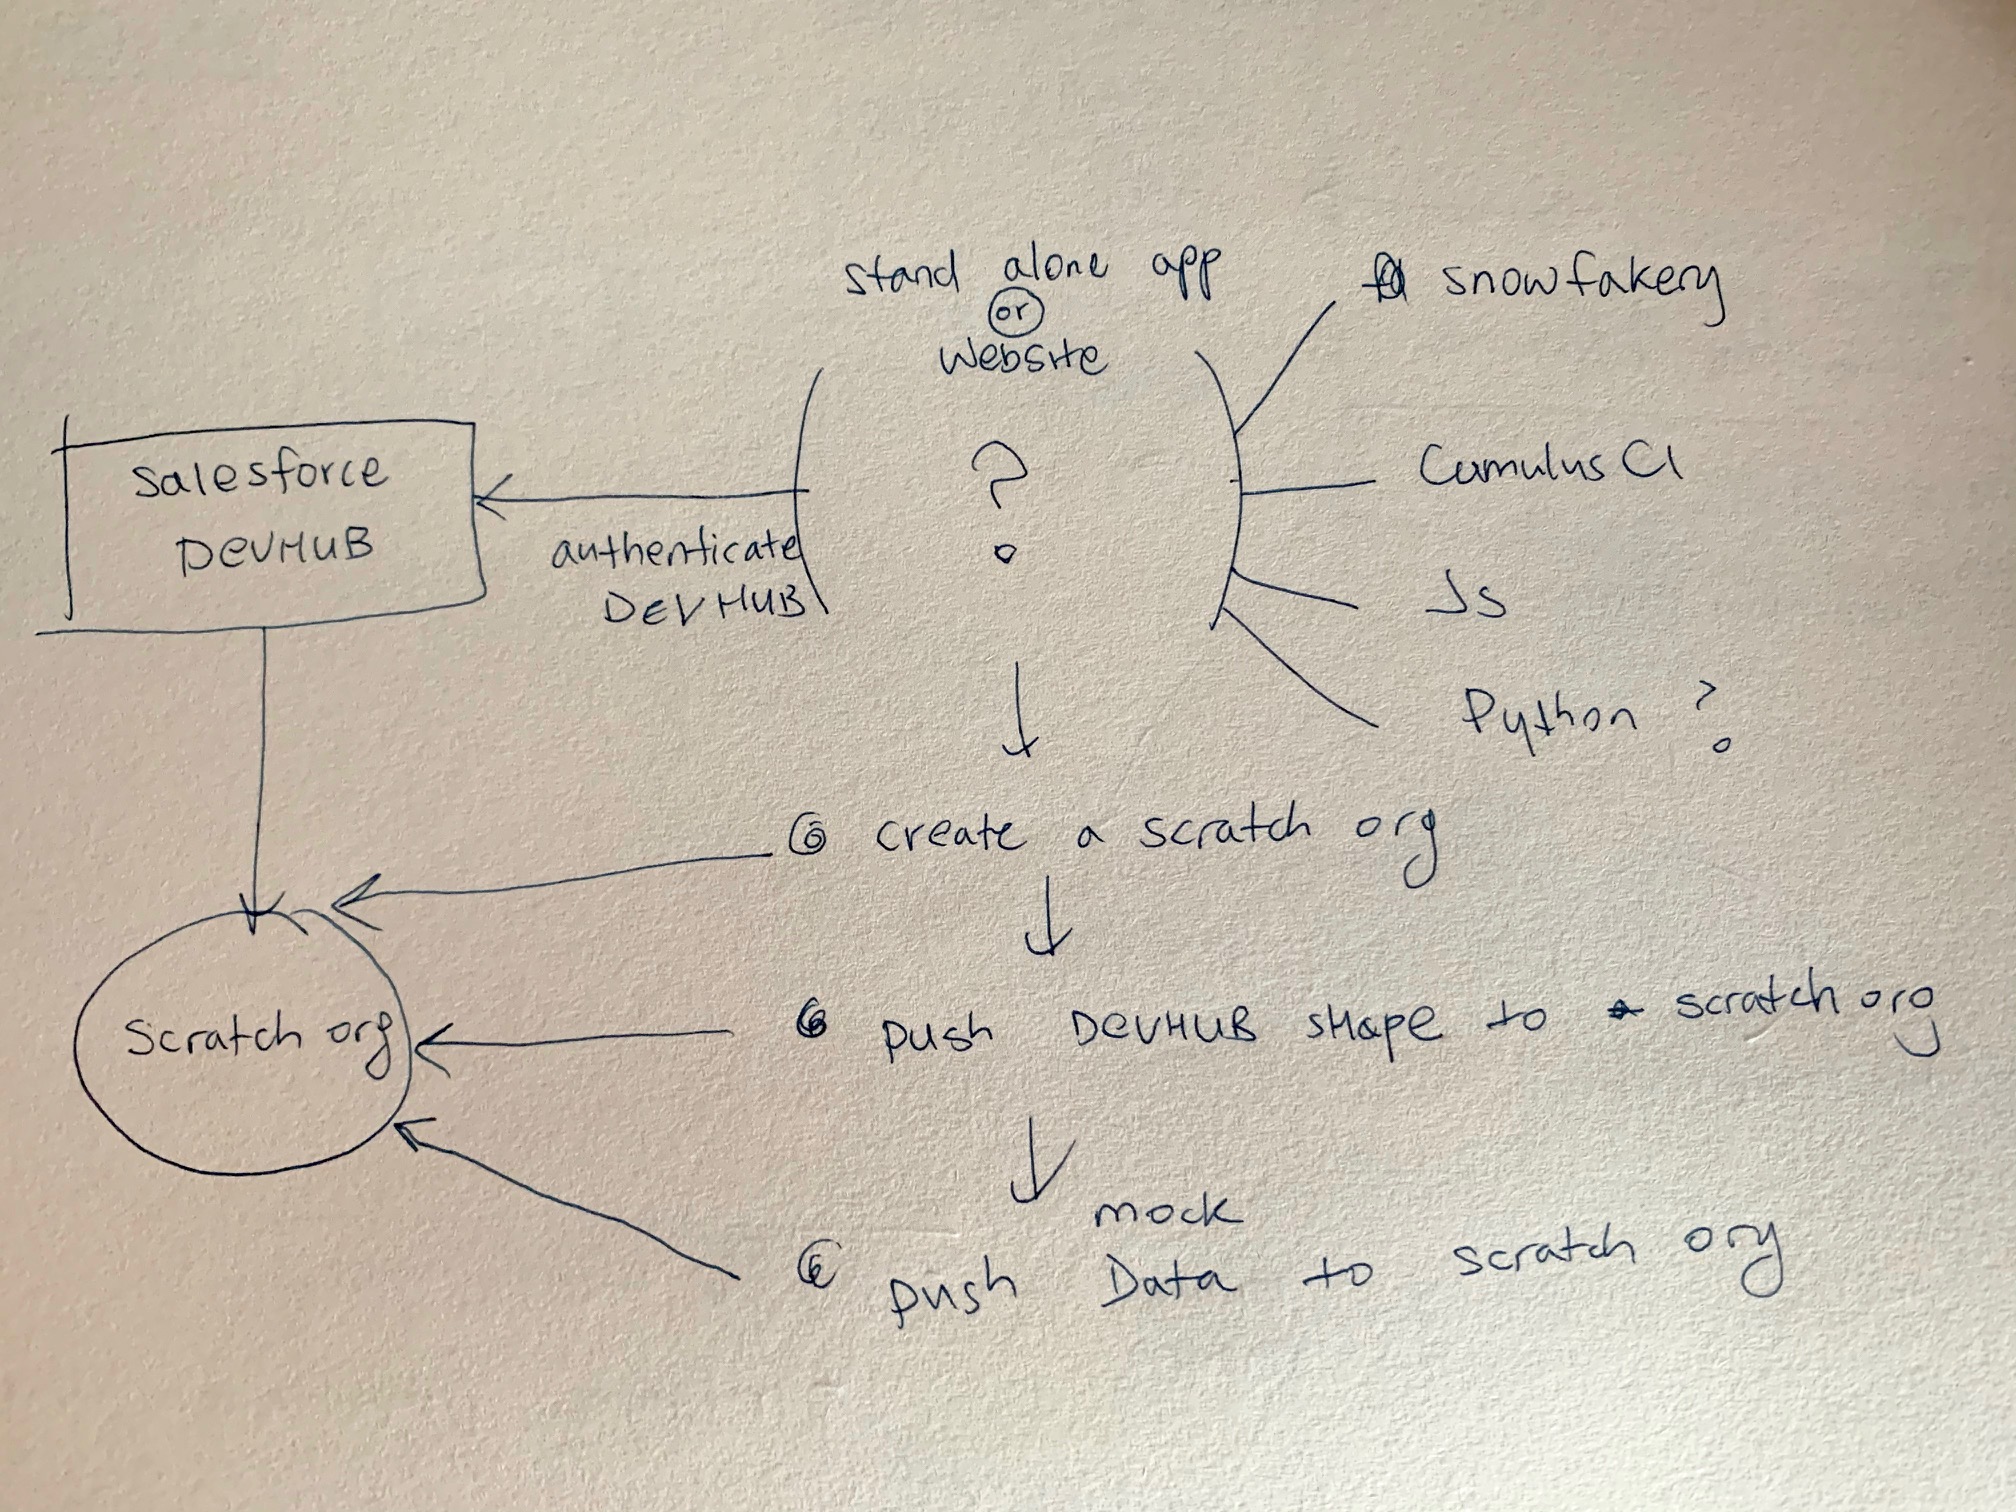 stand alone app
or
website
?
snowfakery
CumulusCI
Js
Python ?
Salesforce
DEVHUB
authenticate
DEVHUB
create a scratch org
push DEVHUB shape to scratch org
mock
push Data to scratch org
Scratch org